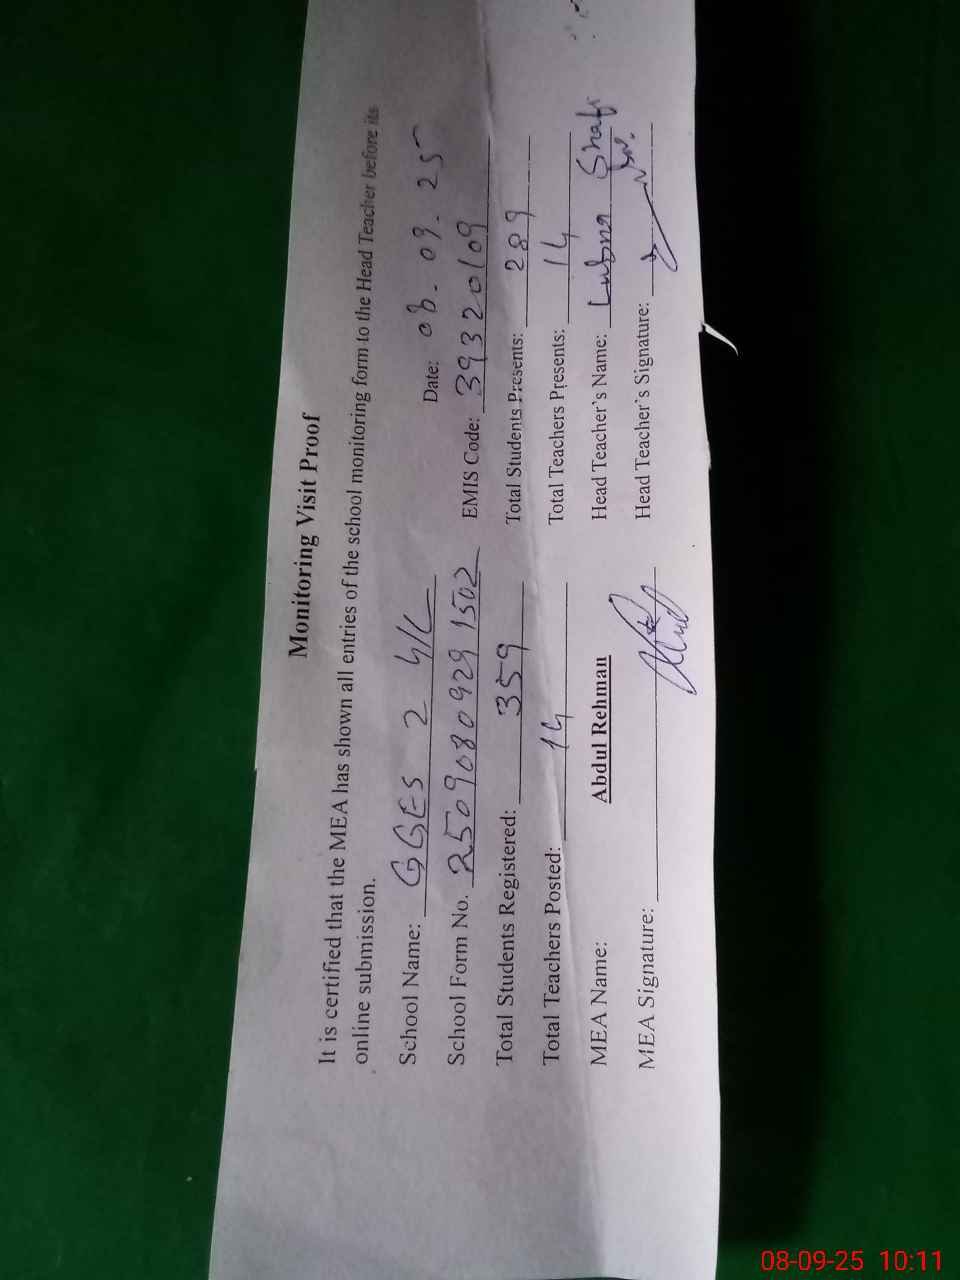 Monitoring Visit Proof
It is certified that the MEA has shown all entries of the school monitoring form to the Head Teacher before its
online submission.
School Name: GGES 2 4/L Date: 08-09-25
School Form No. 25090809291502 EMIS Code: 39320109
Total Students Registered: 359 Total Students Presents: 289
Total Teachers Posted: 14 Total Teachers Presents: 14
MEA Name: Abdul Rehman Head Teacher's Name: Lubna Shafi
MEA Signature: Head Teacher's Signature:
08-09-25 10:11